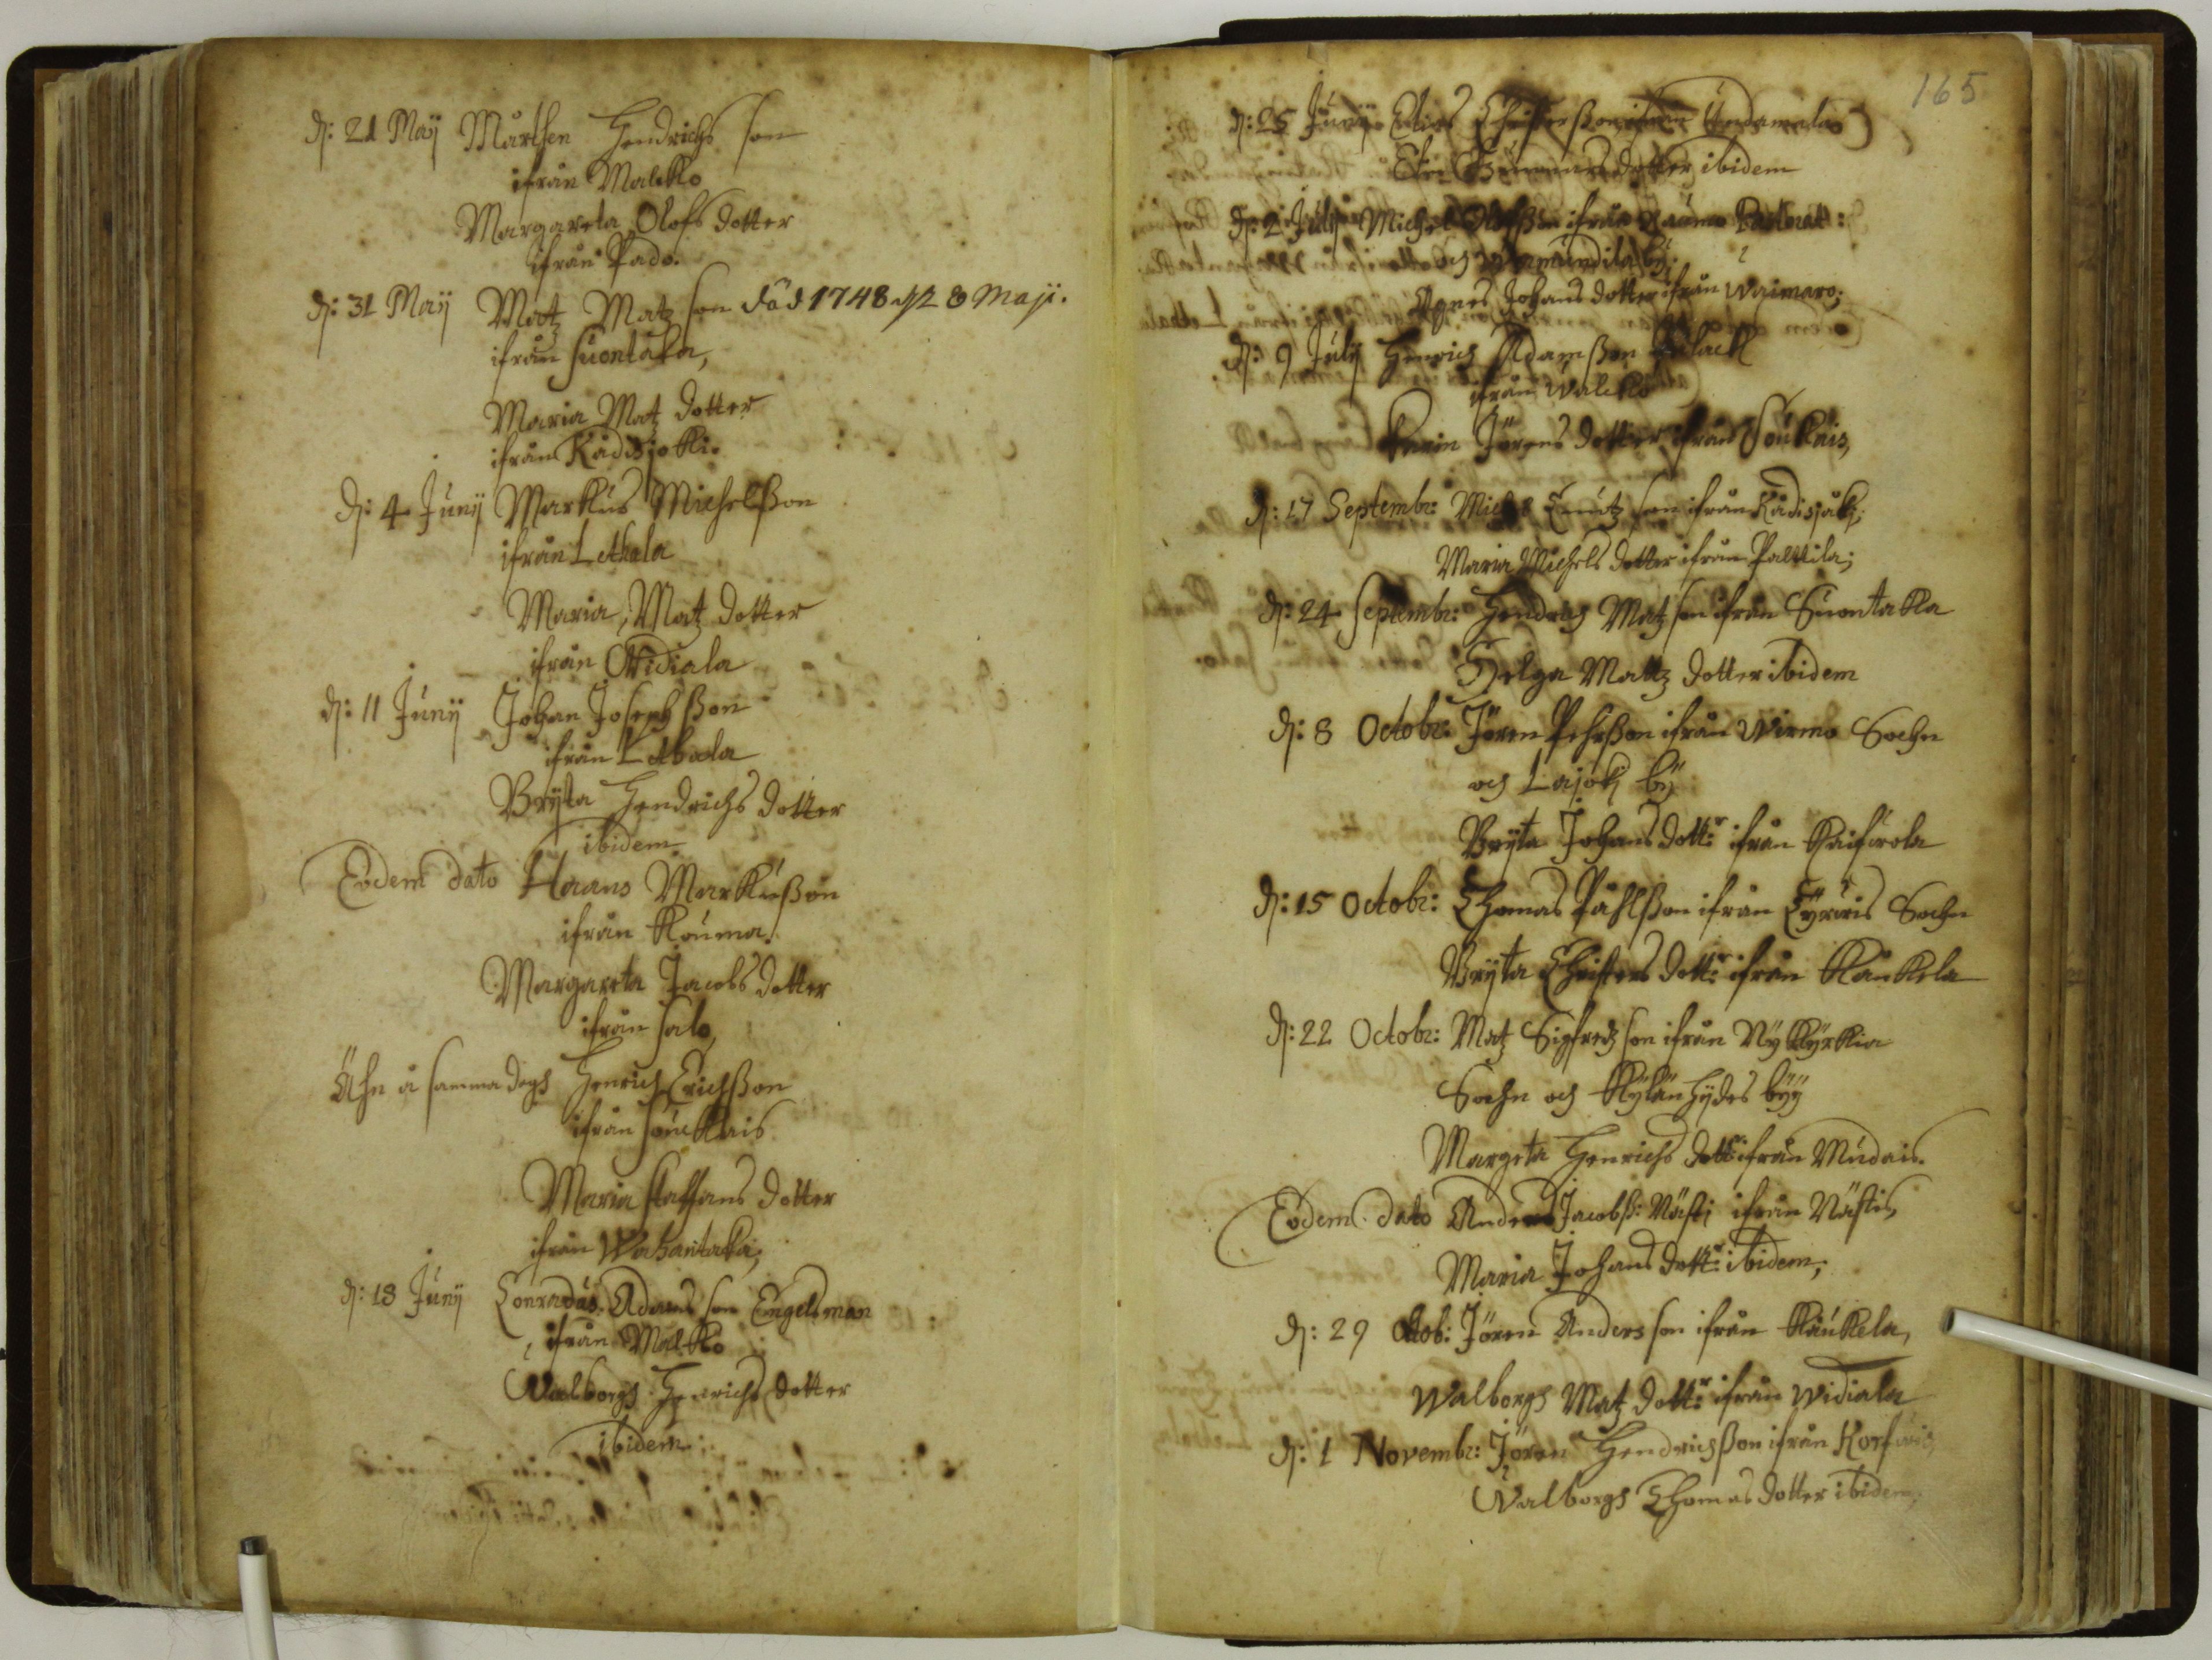 d: 21 Maij Mårthen Hendrichs son
ifrån Malcko
Margareta Olofs dotter
ifrån Pado.
d: 31 Maij Matz Matz son död 1748 d/2 8 Maji.
ifrån Suontaka,
Maria Matz dotter
ifrån Kådisjokki.
d: 4 Junij Markus Michelsson
ifrån Lethala
Maria, Matz dotter
ifrån Widiala
d: 11 Junij Johan Josephsson
ifrån Lethala
Brÿta Hendrichs dotter
ibidem
Eodem dato Haans Markusson
ifrån Kouma.
Margareta Jacobs dotter
ifrån Salo,
Ähn å samma dagh Henrich Erichsson
ifrån Souckais
Maria Staffans dotter
ifrån Wahantaka,
d: 18 Junij Conradus Adams son Engelsman
ifrån Malcko
Walborgh Henrichs dotter
ibidem.
165
d: 25 Junij Elias Christersson ifrån Undamala
dotter ibidem
d: 2 Julij Michel ifrån Raumo
och by
Agnes Johans dotter ifrån Waimaro;
d: 9 Julij Henrich Adamsson
ifrån Walcko
Karin Jörens dotter ifrån Soukais,
d: 17 Septembr: Mich Knutz son ifrån Kådisjåki;
Maria Michels dotter ifrån Palttila;
d: 24 Septembr: Hendrich Matz son ifrån Suontakka
Helga Mattz dotter ibidem
d: 8 Octobr: Jören Pehrsson ifrån Wirmo Sochn
och Lajoki bÿ
Brÿta Johans dottr ifrån Kaifwola
d: 15 Octobr: Thomas Påhlsson ifrån Eÿrois Sochn
Brÿta Christers dottr ifrån Kaukela
d: 22 Octobr: Matz Sigfredz son ifrån Nykÿrkia
Sochn och Kÿlänhÿdes bÿÿ
Margeta Henrichs dottr ifrån Mudais.
Eodem dato Anders Jacobss: Nästi ifrån Nästis,
Maria Johans dottr ibidem;
d: 29 Octob: Jören Anders son ifrån Kaukela,
Walborgh Matz dottr ifrån Widiala
d: 1 Novembr: Jören Hendrichsson ifrån Korfwois
Walborgh Thomas dotter ibidem,